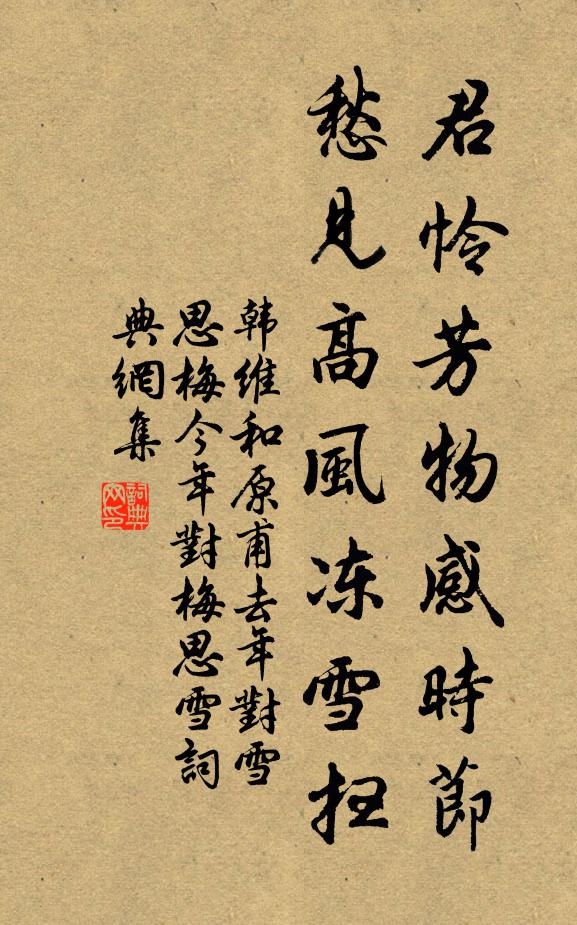 君怜芳物感時節
愁見高風冻雪狂
韩維和原甫去年對雪
思梅今年對梅思雪詞
典網集
詞典
网印